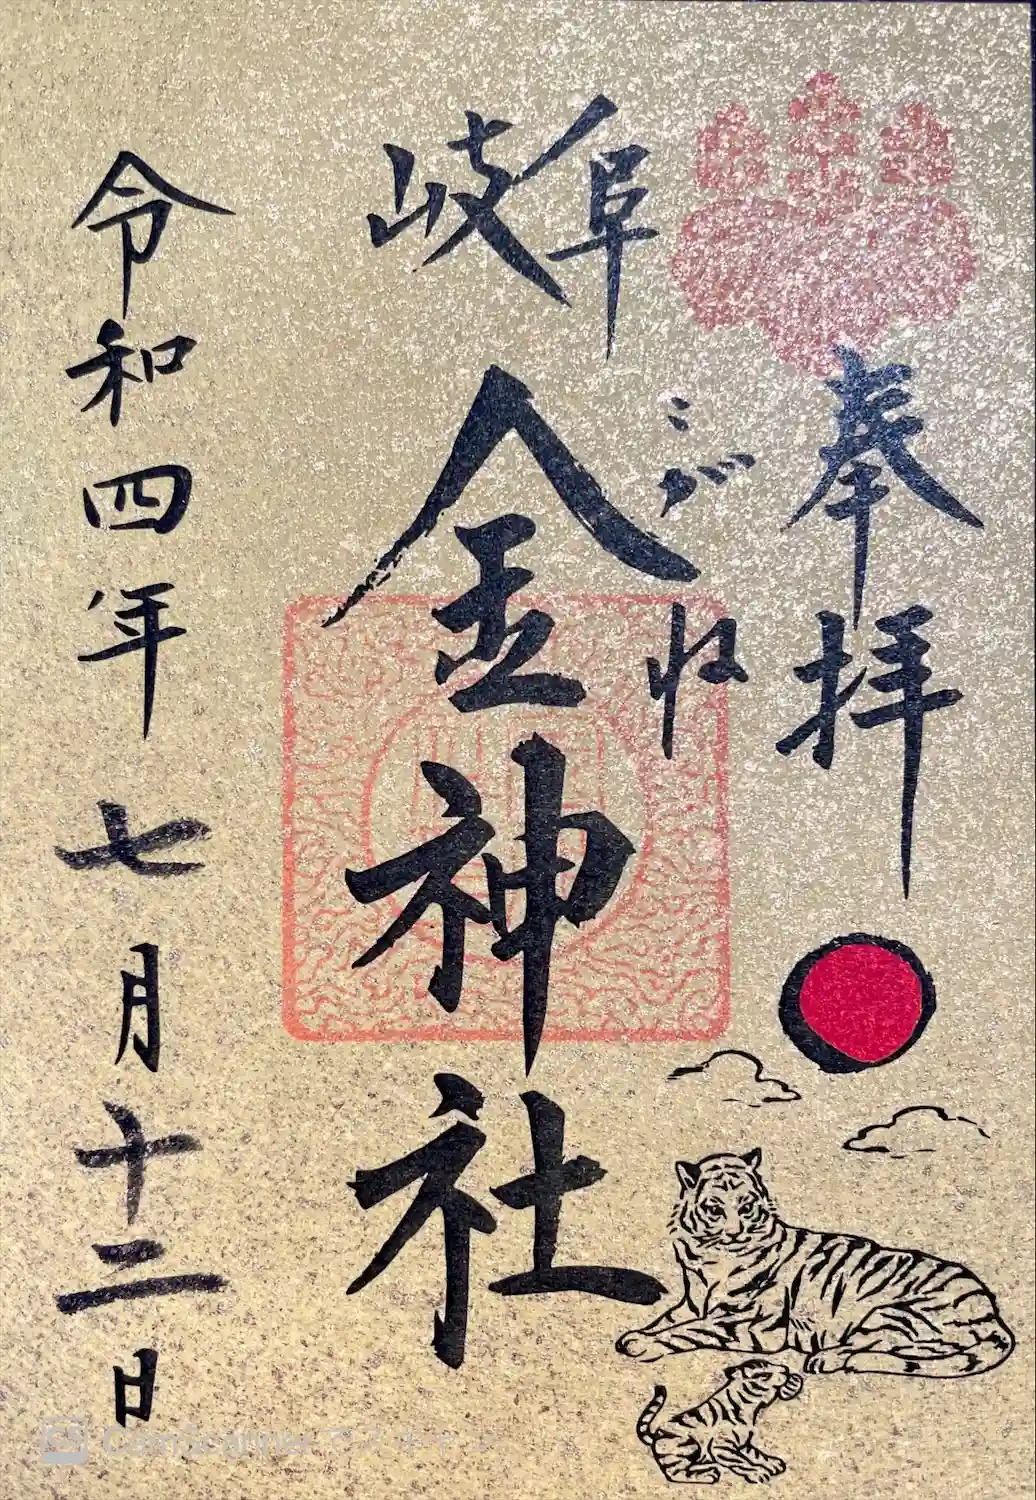 奉拝
岐阜
こがね
金神社
令和四年
七月十二日
CS CamScanner